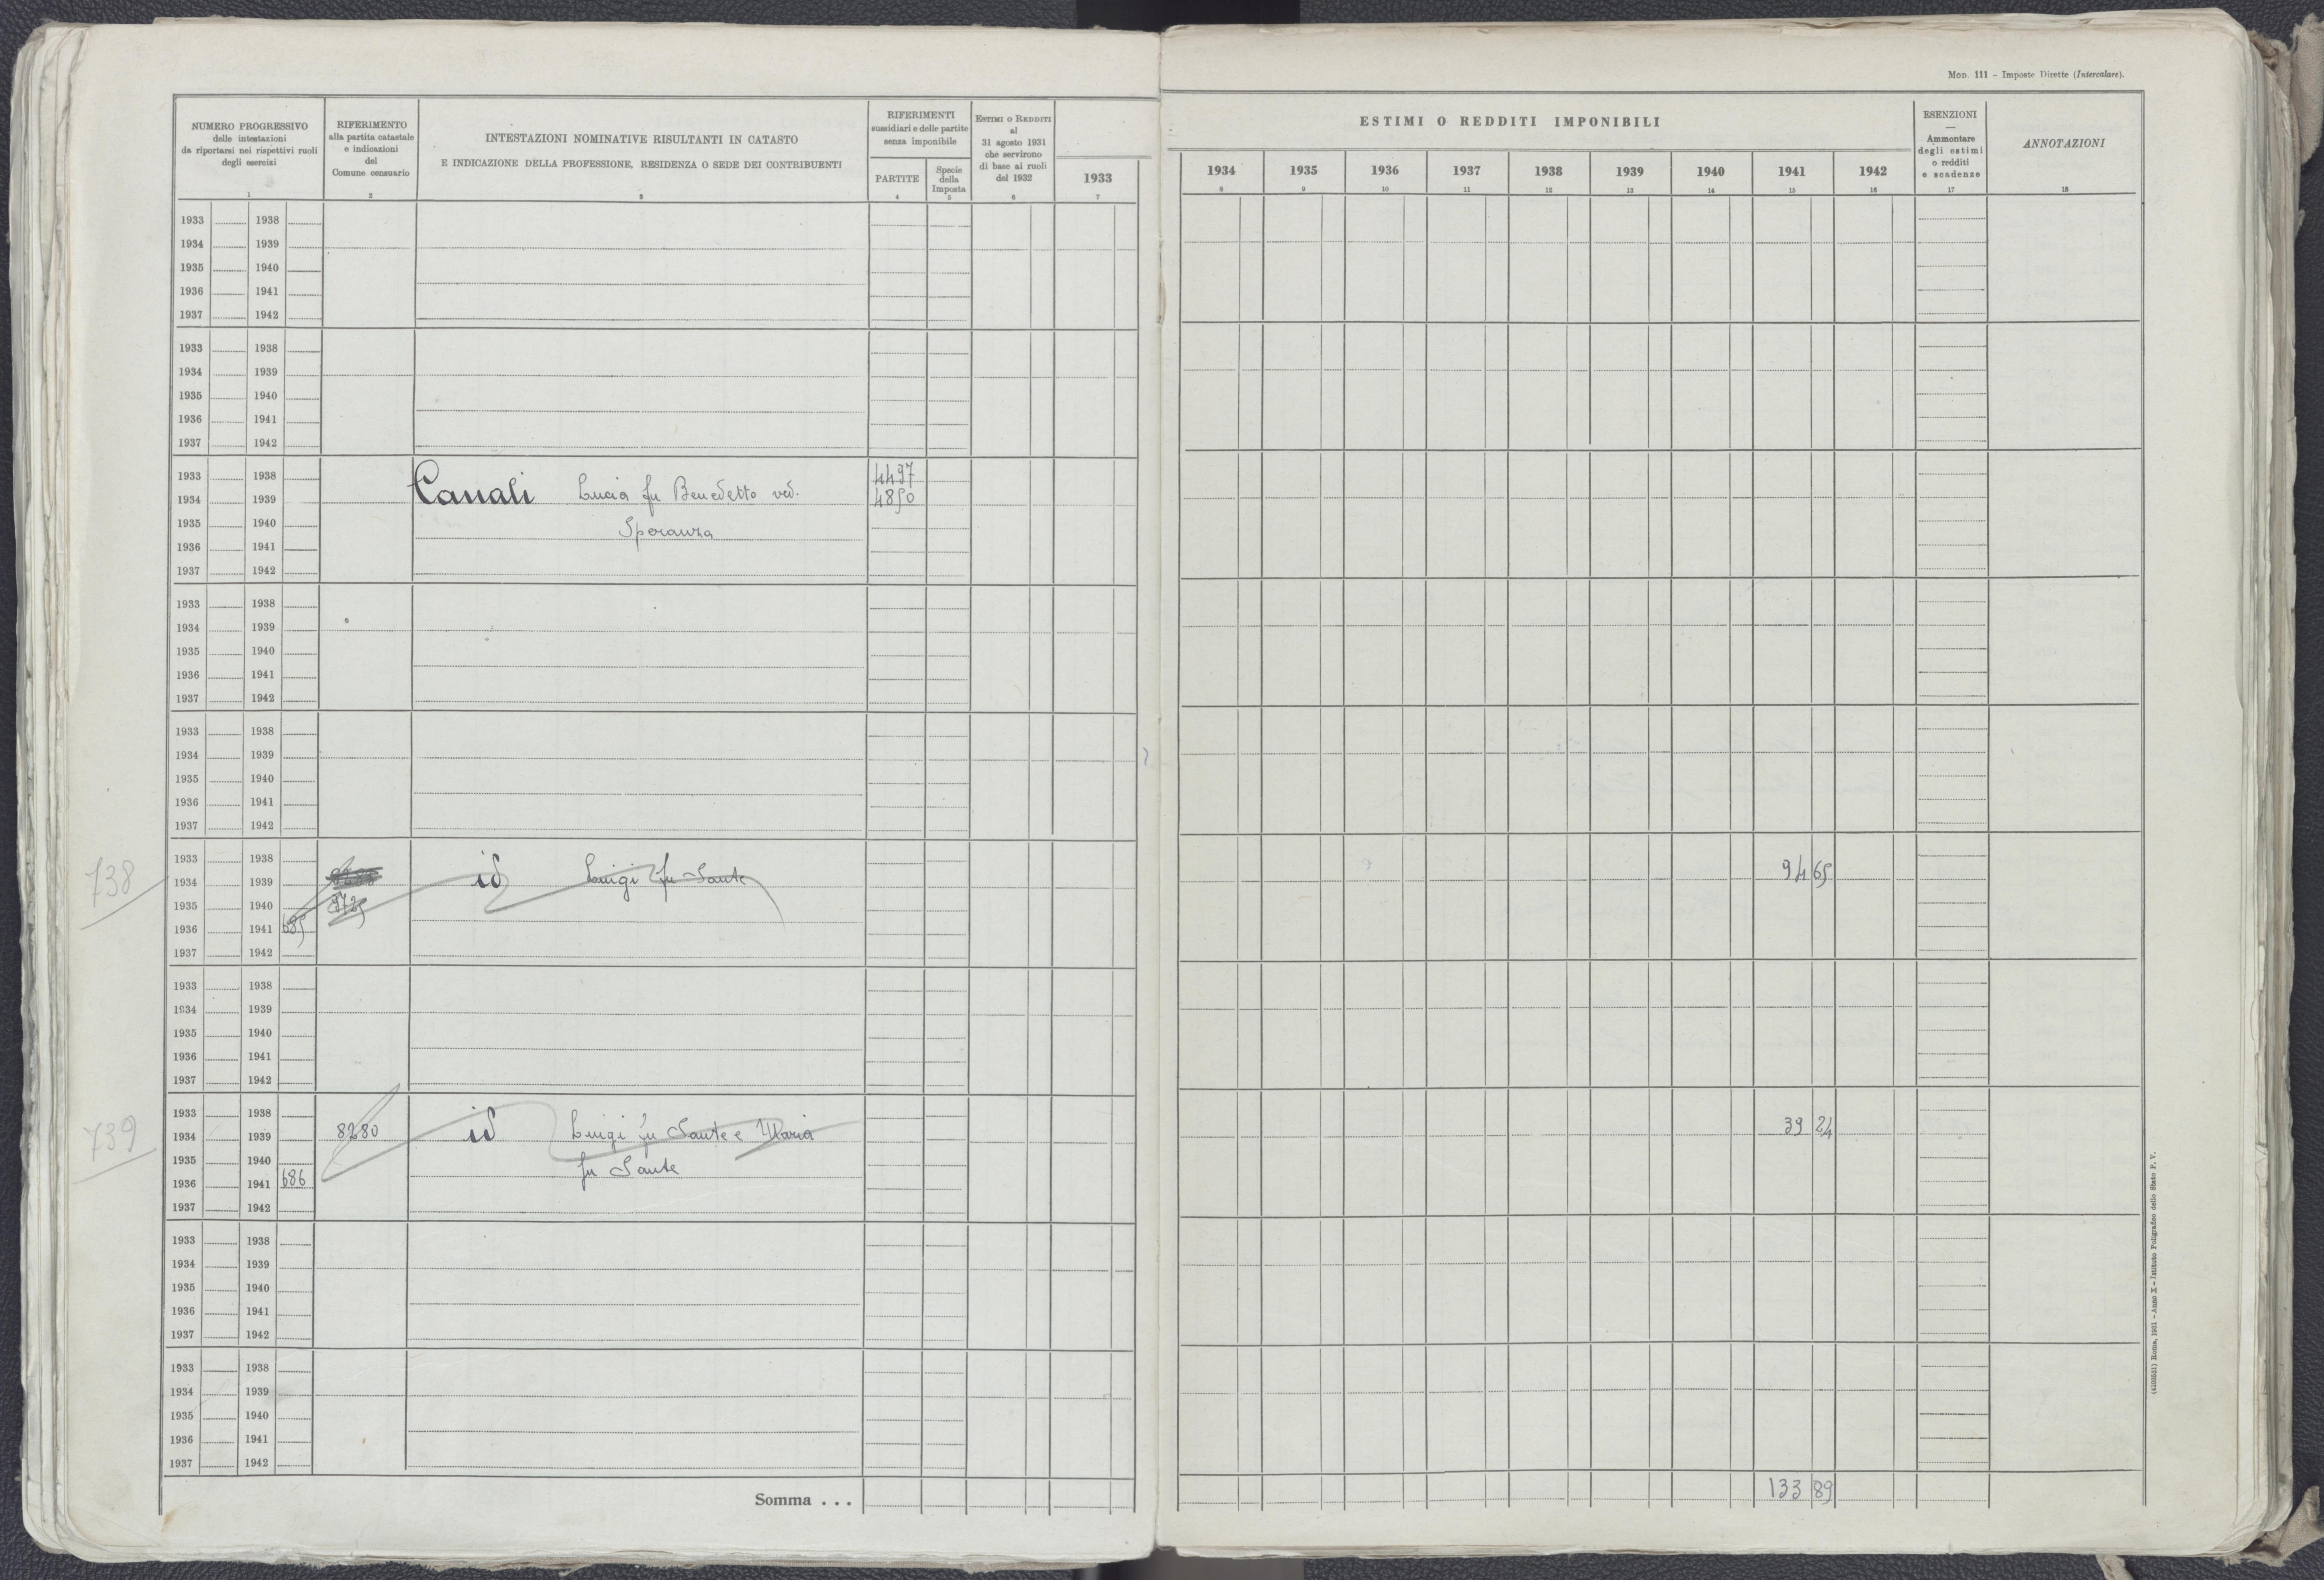 Mod. 111 – Imposte Dirette (Intercalare).
NUMERO PROGRESSIVO
delle intestazioni
da riportarsi nei rispettivi ruoli
degli esercizi
1
RIFERIMENTO
alla partita catastale
e indicazioni
del
Comune censuario
2
INTESTAZIONI NOMINATIVE RISULTANTI IN CATASTO
E INDICAZIONE DELLA PROFESSIONE, RESIDENZA O SEDE DEI CONTRIBUENTI
3
RIFERIMENTI
sussidiari e delle partite
senza imponibile
PARTITE
4
Specie
della
Imposta
5
Estimi o Redditi
al
31 agosto 1931
che servirono
di base ai ruoli
del 1932
6
1933
7
ESTIMI O REDDITI IMPONIBILI
1934 1935 1936 1937 1938 1939 1940 1941 1942
8 9 10 11 12 13 14 15 16
ESENZIONI
—
Ammontare
degli estimi
o redditi
e scadenze
17
ANNOTAZIONI
18
1933 1938
1934 1939
1935 1940
1936 1941
1937 1942
1933 1938
1934 1939
1935 1940
1936 1941
1937 1942
1933 1938 4497
1934 1939 Canali Lucia fu Benedetto ved. 4850
1935 1940 Speranza
1936 1941
1937 1942
1933 1938
1934 1939
1935 1940
1936 1941
1937 1942
1933 1938
1934 1939
1935 1940
1936 1941
1937 1942
738
1933 1938
1934 1939 id Luigi fu Sante 94 65
1935 1940
1936 1941 685
1937 1942
1933 1938
1934 1939
1935 1940
1936 1941
1937 1942
739
1933 1938
1934 1939 8280 id Luigi fu Sante e Maria 39 24
1935 1940 fu Sante
1936 1941 686
1937 1942
1933 1938
1934 1939
1935 1940
1936 1941
1937 1942
1933 1938
1934 1939
1935 1940
1936 1941
1937 1942
Somma . . . 133 89
(4103531) Roma, 1931 – Anno X – Istituto Poligrafico dello Stato P. V.